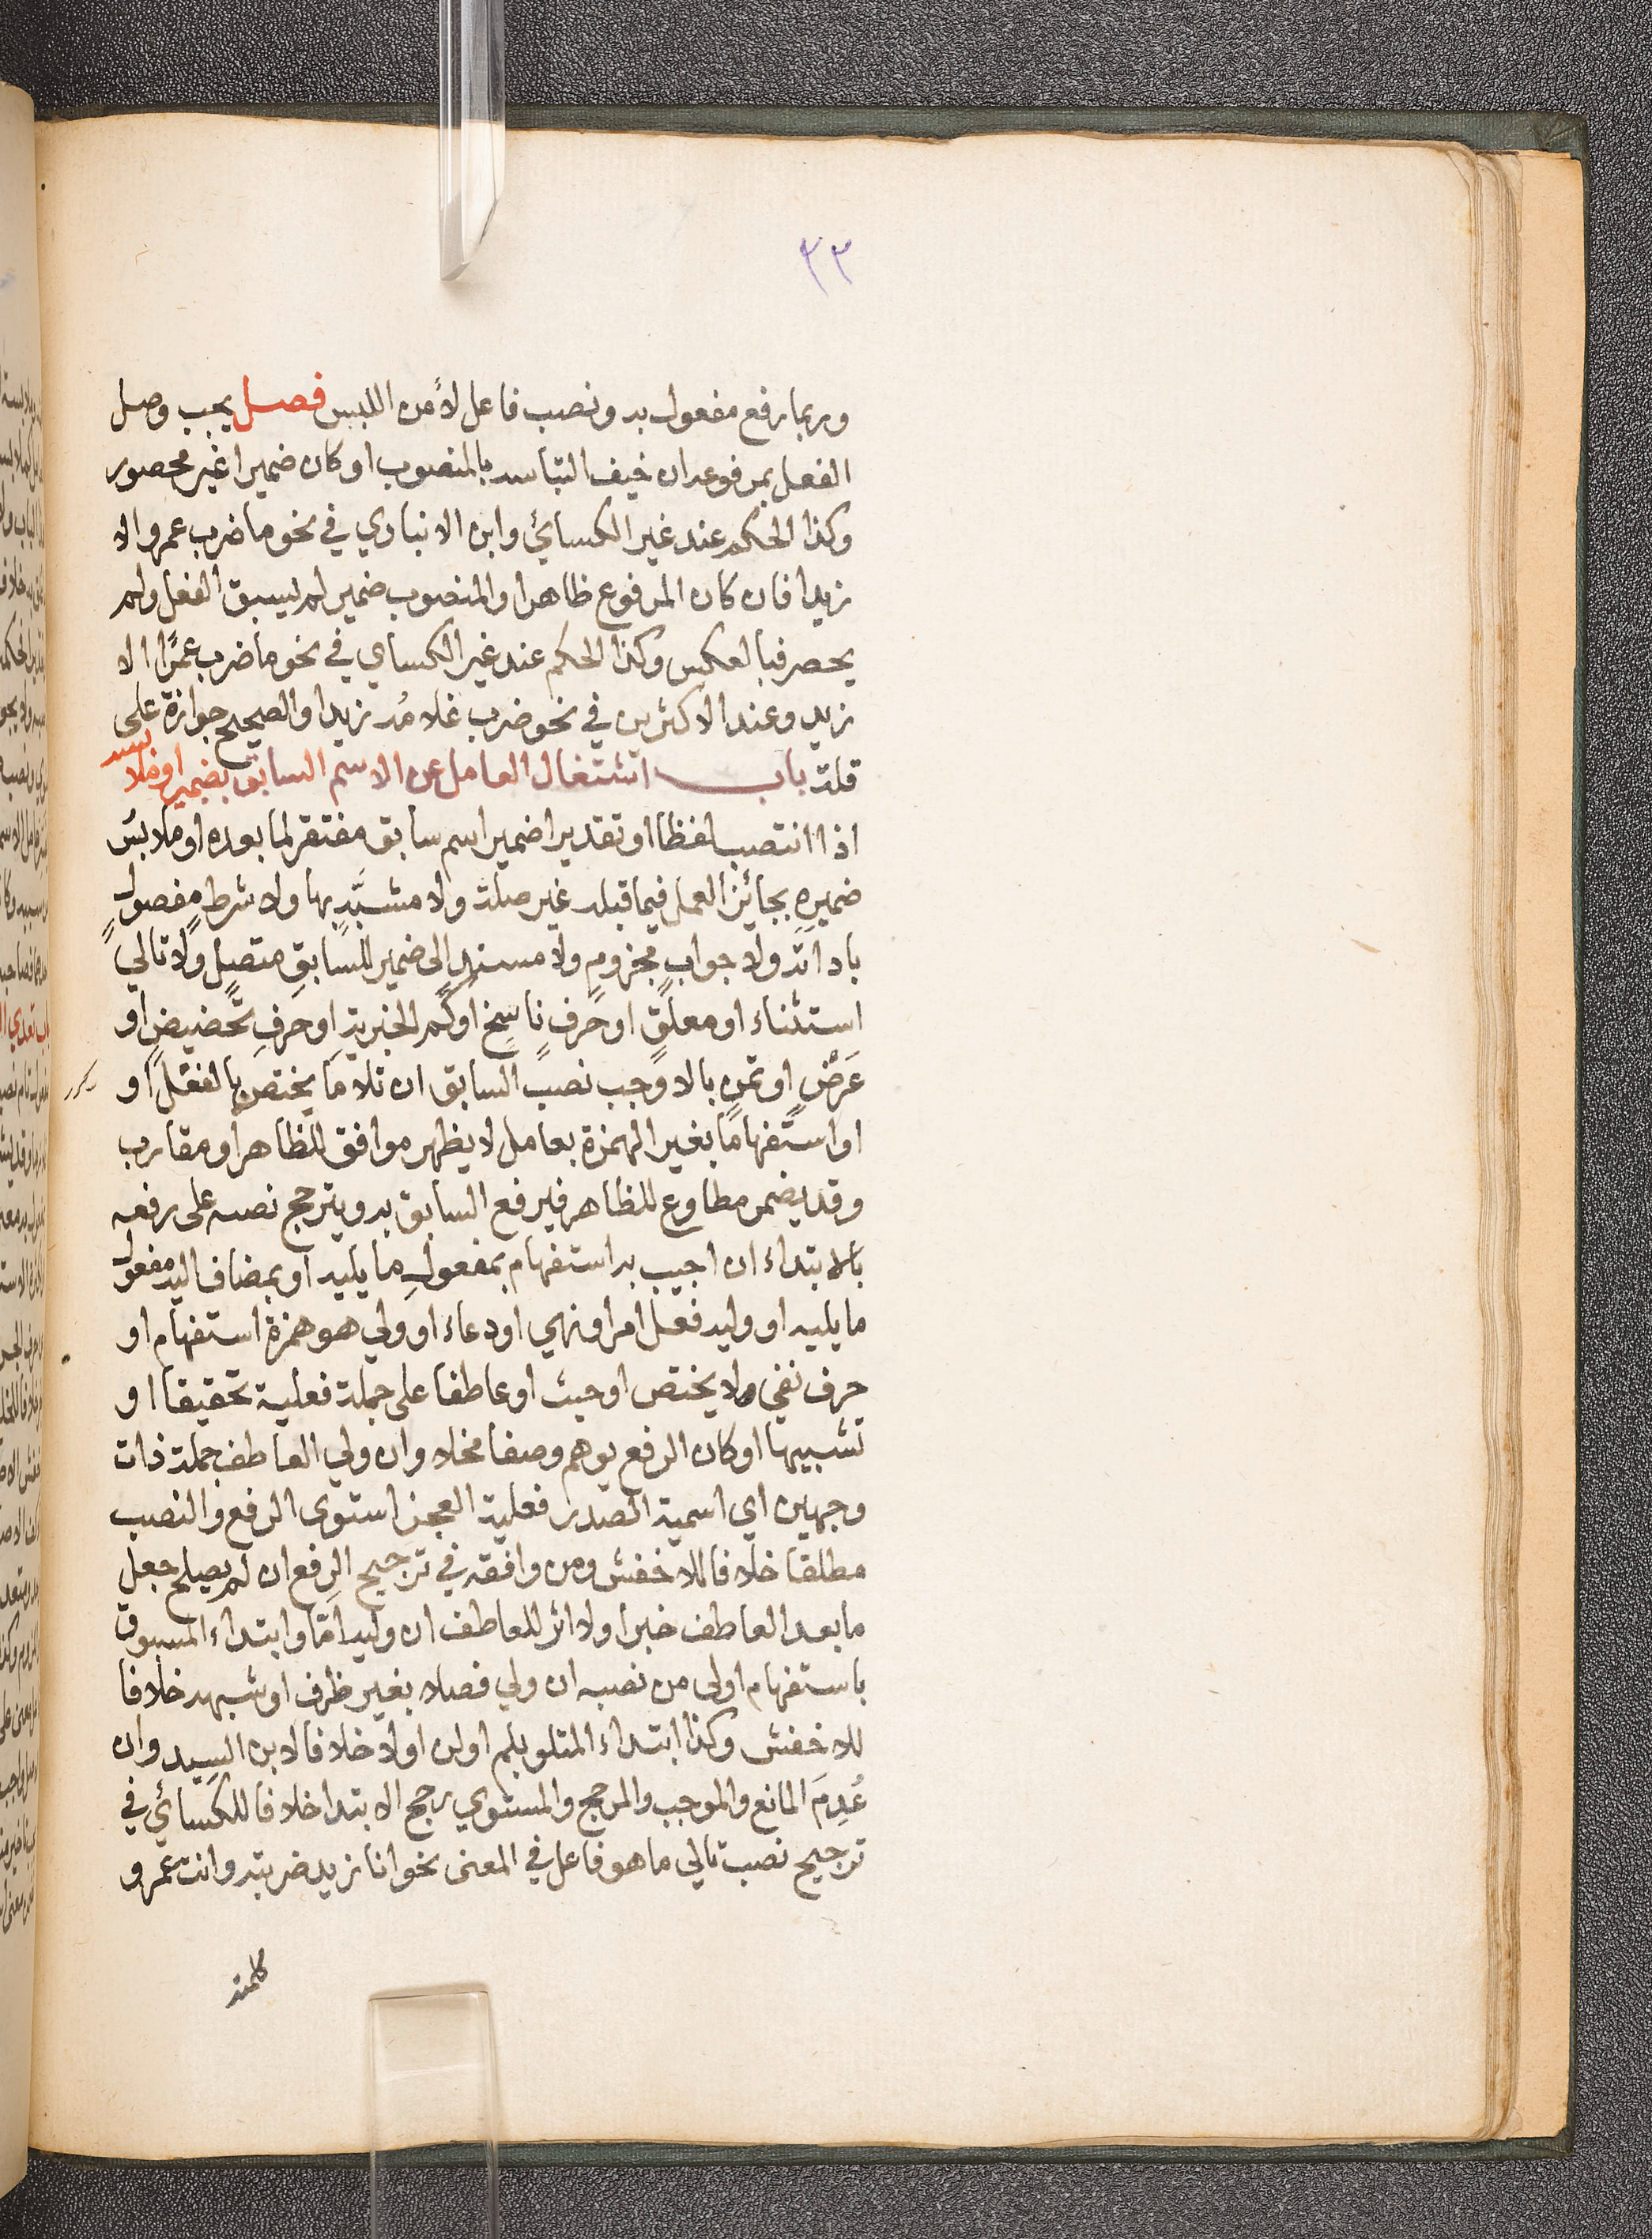 ٣٣
وربما رفع مفعول به ونصب فاعل لأمن اللبس فصل يجب وصل
الفعل بمرفوعه ان خيف التباسه بالمنصوب او كان ضميرا غير محصور
وكذا الحكم عند غير الكسائي وابن الانباري في نحو ما ضرب عمرو الا
زيدا فان كان المرفوع ظاهرا والمنصوب ضمير لم يسبق الفعل ولم
يحصر فبالعكس وكذا الحكم عند غير الكساي في نحو ما ضرب عمرًا الا
زيد وعند الاكثرين في نحو ضرب غلامُه زيدا والصحيح جوازة على
قلة باب اشتغال العامل عن الاسم السابق بضميره او ملابسه
اذا انتصب لفظا او تقديرا ضمير اسم سابق مفتقر لما بعده او ملابسُ
ضميرِه بجائز العمل فيما قبله غير صلة ولا مشبَّهٍ بها ولا شرطٍ مفصولٍ
باداته ولا جوابٍ مجزومٍ ولا مسندٍ الى ضمير للسابقِ متصلٍ ولا تالي
استثناء او معلقٍ او حرفٍ ناسخٍ او كم الخبرية او حرفِ تحضيضٍ او
عَرْضٍ او تمنٍ بالا وجب نصب السابق ان تلا ما يختص بالفعل او
او استفهاما بغير الهمزة بعامل لا يظهر موافق للظاهر او مقارب
وقد يضمر مطاوع للظاهر فيرفع السابق به ويترجح نصبه على رفعه
بالابتداء ان اجيب به استفهام بمفعولِ ما يليه او بمضاف اليه مفعول
ما يليه او وليه فعل امر او نهي او دعاء او ولي هو همزة استفهام او
حرف نفي ولا يختص او حيث او عاطفا على جملة فعلية تحقيقا او
تشبيها او كان الرفع يوهم وصفا مخلا وان ولي العاطف جملة ذات
وجهين اي اسمية الصدر فعلية العجز استوى الرفع والنصب
مطلقا خلافا للاخفش ومن وافقه في ترجيح الرفع ان لم يصلح جعل
ما بعد العاطف خبرا ولا اثر للعاطف ان وليه امّا وابتداء المسبوق
باستفهام اولى من نصبه ان ولي فصلا بغير ظرف او شبهه خلافا
للاخفش وكذا ابتداء المتلو بلم او لن او لا خلافا لابن السِيد وان
عُدِمَ المانع والموجب والمرجح والمستوي رجح الابتدا خلافا للكسائي في
ترجيح نصب تالي ما هو فاعل في المعنى نحو انا زيد ضربته وانت عمرو
كلمته